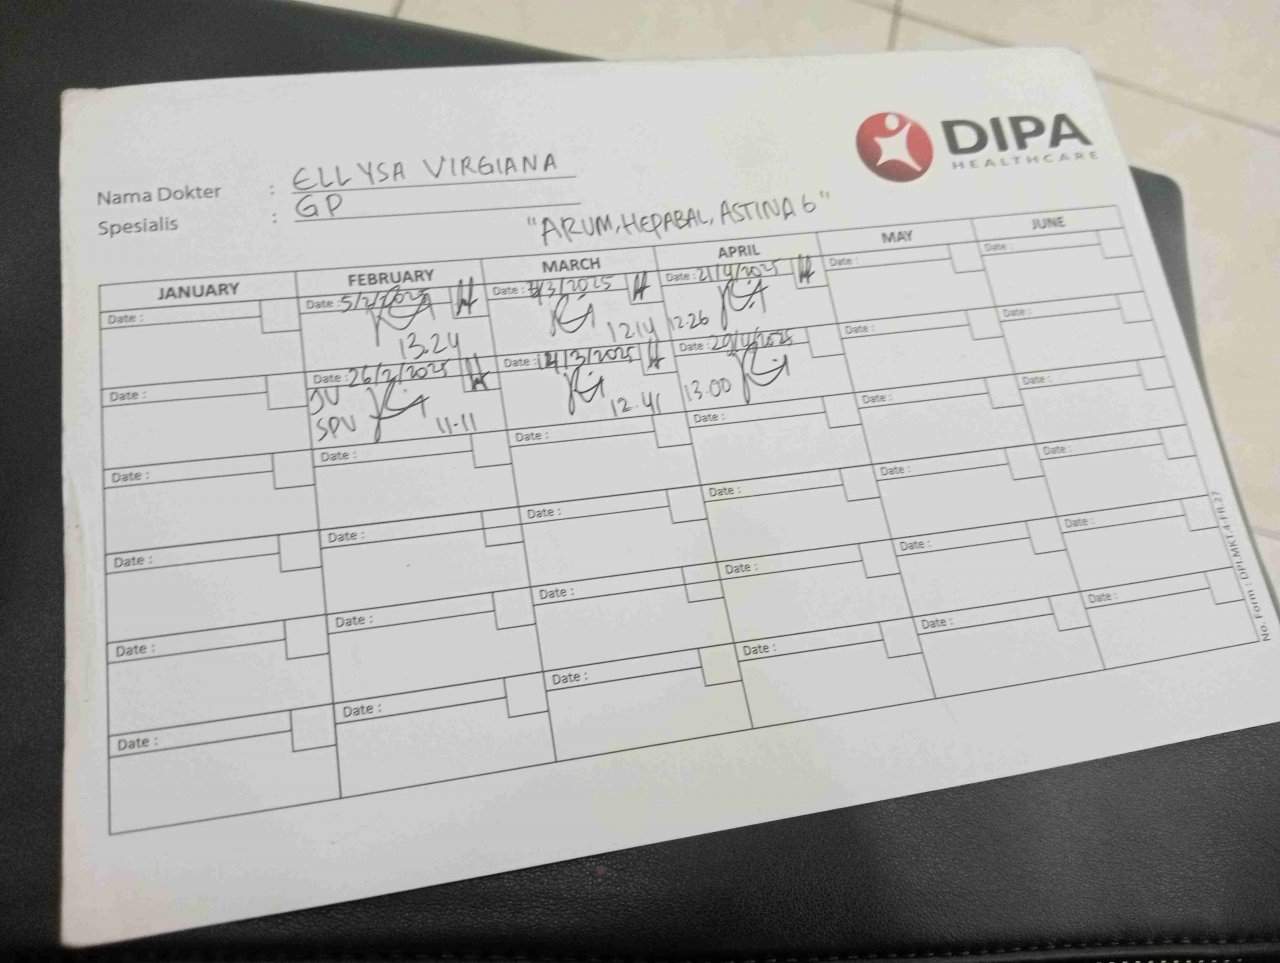 DIPA
HEALTHCARE
Nama Dokter : ELLYSA VIRGIANA
Spesialis : GP
"ARUM, HEPABAL, ASTINA 6"
JANUARY FEBRUARY MARCH APRIL MAY JUNE
Date : Date : 5/2/2025 Date : /3/2025 Date : 21/4/2025 Date : Date :
13.24 12.14 12.26
Date : Date : 26/2/2025 Date : 14/3/2025 Date : 29/4/2025 Date : Date :
JV
SPV 11-11 12.41 13.00
Date : Date : Date : Date : Date : Date :
Date : Date : Date : Date : Date : Date :
Date : Date : Date : Date : Date : Date :
Date : Date : Date : Date : Date : Date :
No. Form : DPI.MKT-FR.27